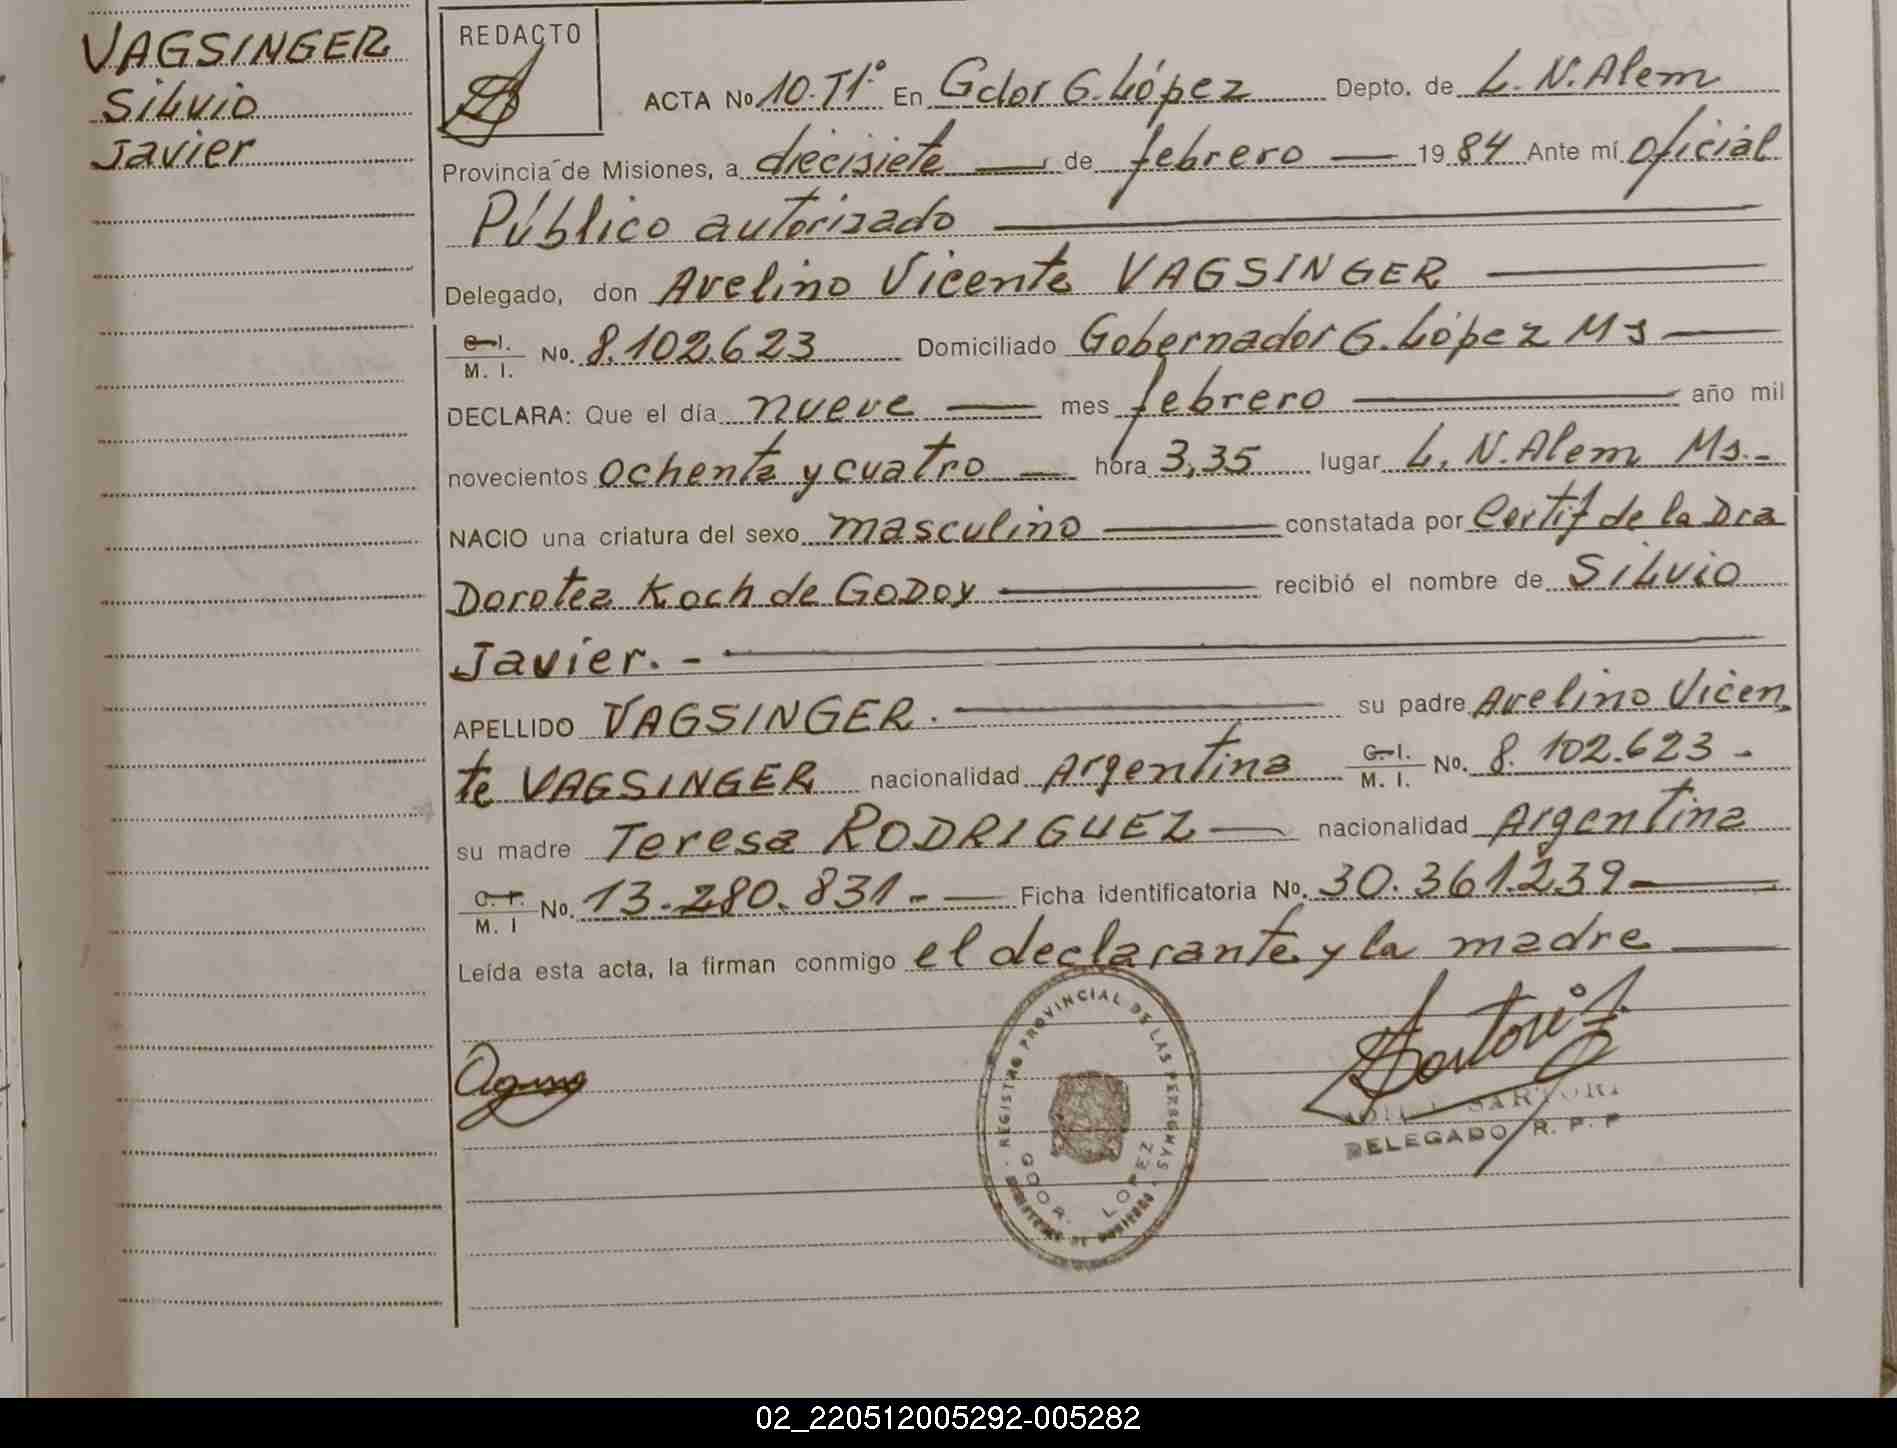 VAGSINGER
Silvio
Javier
REDACTO
ACTA No 10. Tº1. En Gdor G. López Depto. de L. N. Alem
Provincia de Misiones, a diecisiete de febrero 1984 Ante mí oficial
Público autorizado
Delegado, don Avelino Vicente VAGSINGER
C.I. M. I. No. 8.102.623 Domiciliado Gobernador G. López Ms
DECLARA: Que el día nueve mes febrero año mil
novecientos ochenta y cuatro hora 3,35 lugar L. N. Alem Ms.-
NACIO una criatura del sexo masculino constatada por Certif de la Dra
Dorotea Koch de GODOY recibió el nombre de Silvio
Javier. -
APELLIDO VAGSINGER. su padre Avelino Vicen
te VAGSINGER nacionalidad Argentina C.I. M. I. No. 8. 102.623 -
su madre Teresa RODRIGUEZ nacionalidad Argentina
M. I No. 13.280.831.- Ficha identificatoria No. 30.361.239-
Leída esta acta, la firman conmigo el declarante y la madre
REGISTRO PROVINCIAL DE LAS PERSONAS
GDOR. LOPEZ
Sartori
SARTORI
DELEGADO R. P. P
02_220512005292-005282